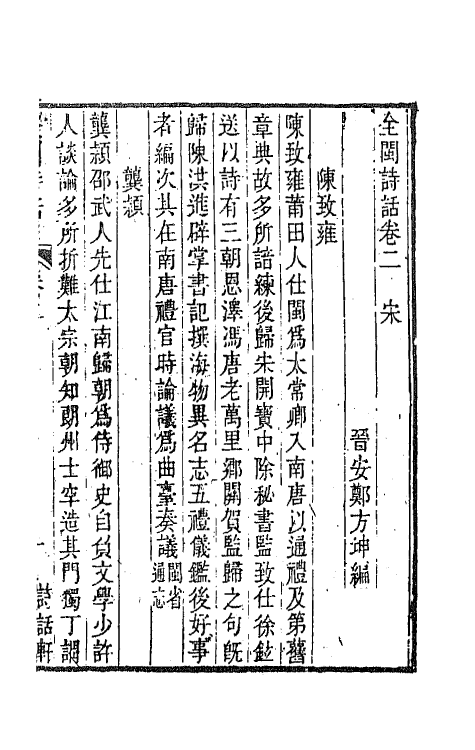 全閩詩話卷二 宋
晉安鄭方坤編
陳致雍
陳致雍莆田人仕閩爲太常卿入南唐以通禮及第舊
章典故多所諳練後歸宋開寶中除秘書監致仕徐鉉
送以詩有三朝恩澤馮唐老萬里鄉關賀監歸之句旣
歸陳洪進辟掌書記撰海物異名志五禮儀鑑後好事
者編次其在南唐禮官時論議爲曲臺奏議閩省通志
龔穎
龔穎邵武人先仕江南歸朝爲侍御史自負文學少許
人談論多所折難太宗朝知朗州士罕造其門獨丁謂
詩話軒